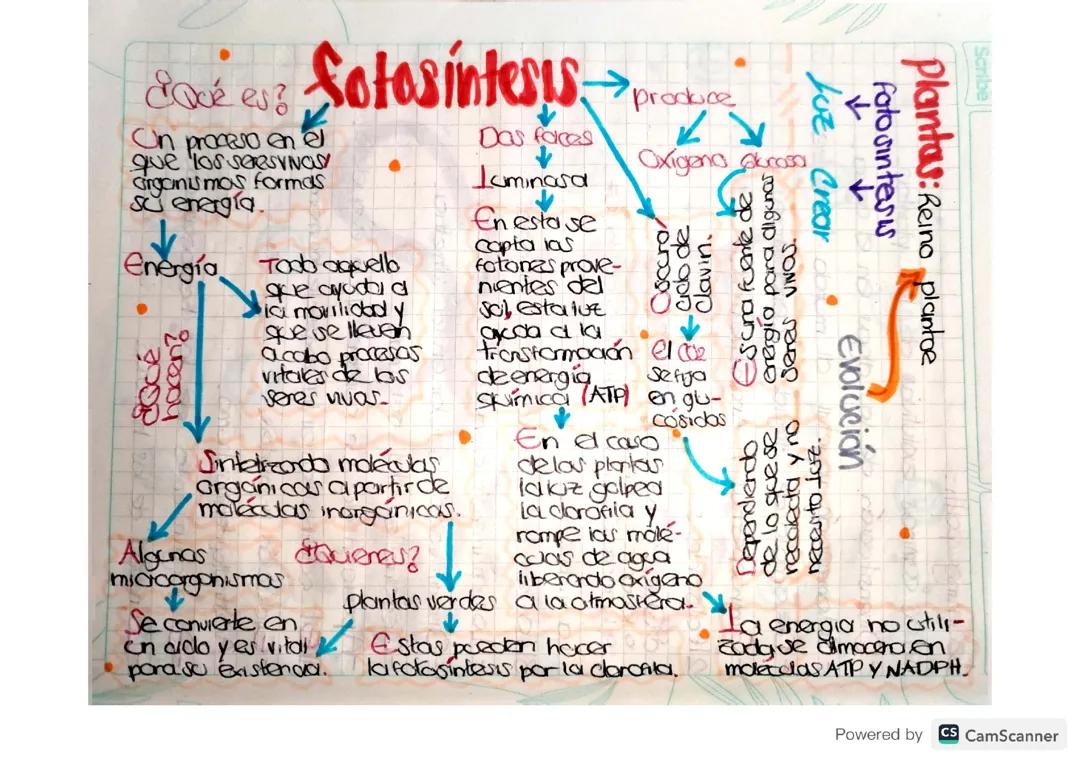 fotosíntesis
¿Qué es?
Un proceso en el
que los seres vivos/
organismos formas
su energía.
Energía
Todo aquello
que ayuda a
la movilidad y
que se lleven
acabo procesos
vitales de los
seres vivos.
¿Qué
hacen?
Sintetizando moléculas
orgánicas a partir de
moléculas inorgánicas.
Algunos
microorganismos
¿Quienes?
plantas verdes
Se convierte en
un ciclo y es vital
para su existencia.
Estas pueden hacer
la fotosíntesis por la clorofila.
Dos faces
Luminosa
En esta se
capta los
fotones prove-
nientes del
sol, esta luz
ayuda a la
transformación
de energía
química (ATP)
En el caso
de las plantas
la luz golpea
la clorofila y
rompe las molé-
culas de agua
liberando oxígeno
a la atmosfera.
La energia no utili-
zada se almacena en
moléculas ATP Y NADPH.
produce
Oxígeno
Glucosa
Es una fuente de
energía para algunos
seres vivos.
Oscura
ciclo de
clavin.
el
se fija
en glu-
cósidos
Dependendo
de lo que se
recolecta y no
necesita luz.
plantas: Reino plantae
fotosintesis
Luz Crear
Evolución
Scribe
Powered by CS CamScanner